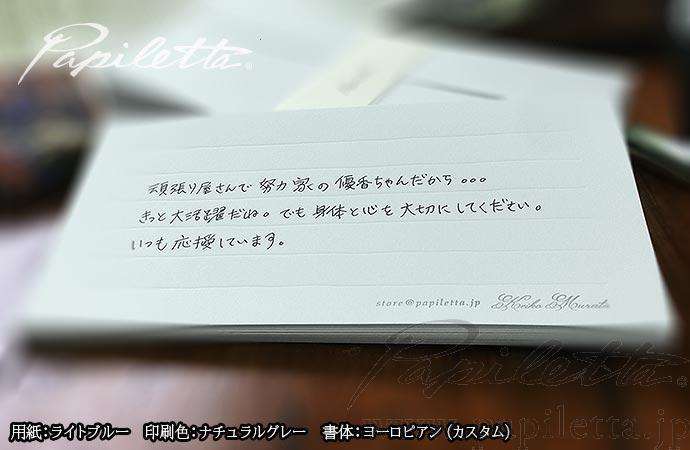 Papiletta®
頑張り屋さんで 努力家の 優香ちゃんだから。。。
きっと 大活躍だね。でも 身体と心を 大切にしてください。
いつも 応援しています。
store@papiletta.jp Keiko Murata
Papiletta®
www.papiletta.jp
用紙：ライトブルー 印刷色：ナチュラルグレー 書体：ヨーロピアン（カスタム）